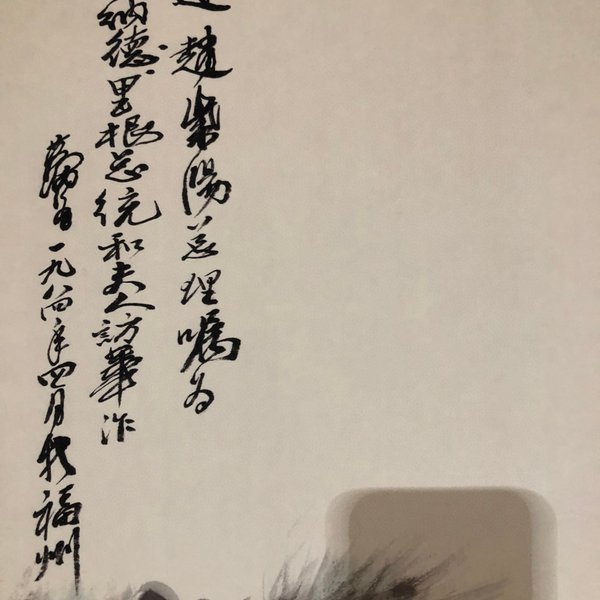 趙紫陽总理嘱为
纳德·里根总统和夫人訪華作
一九八四年四月於福州